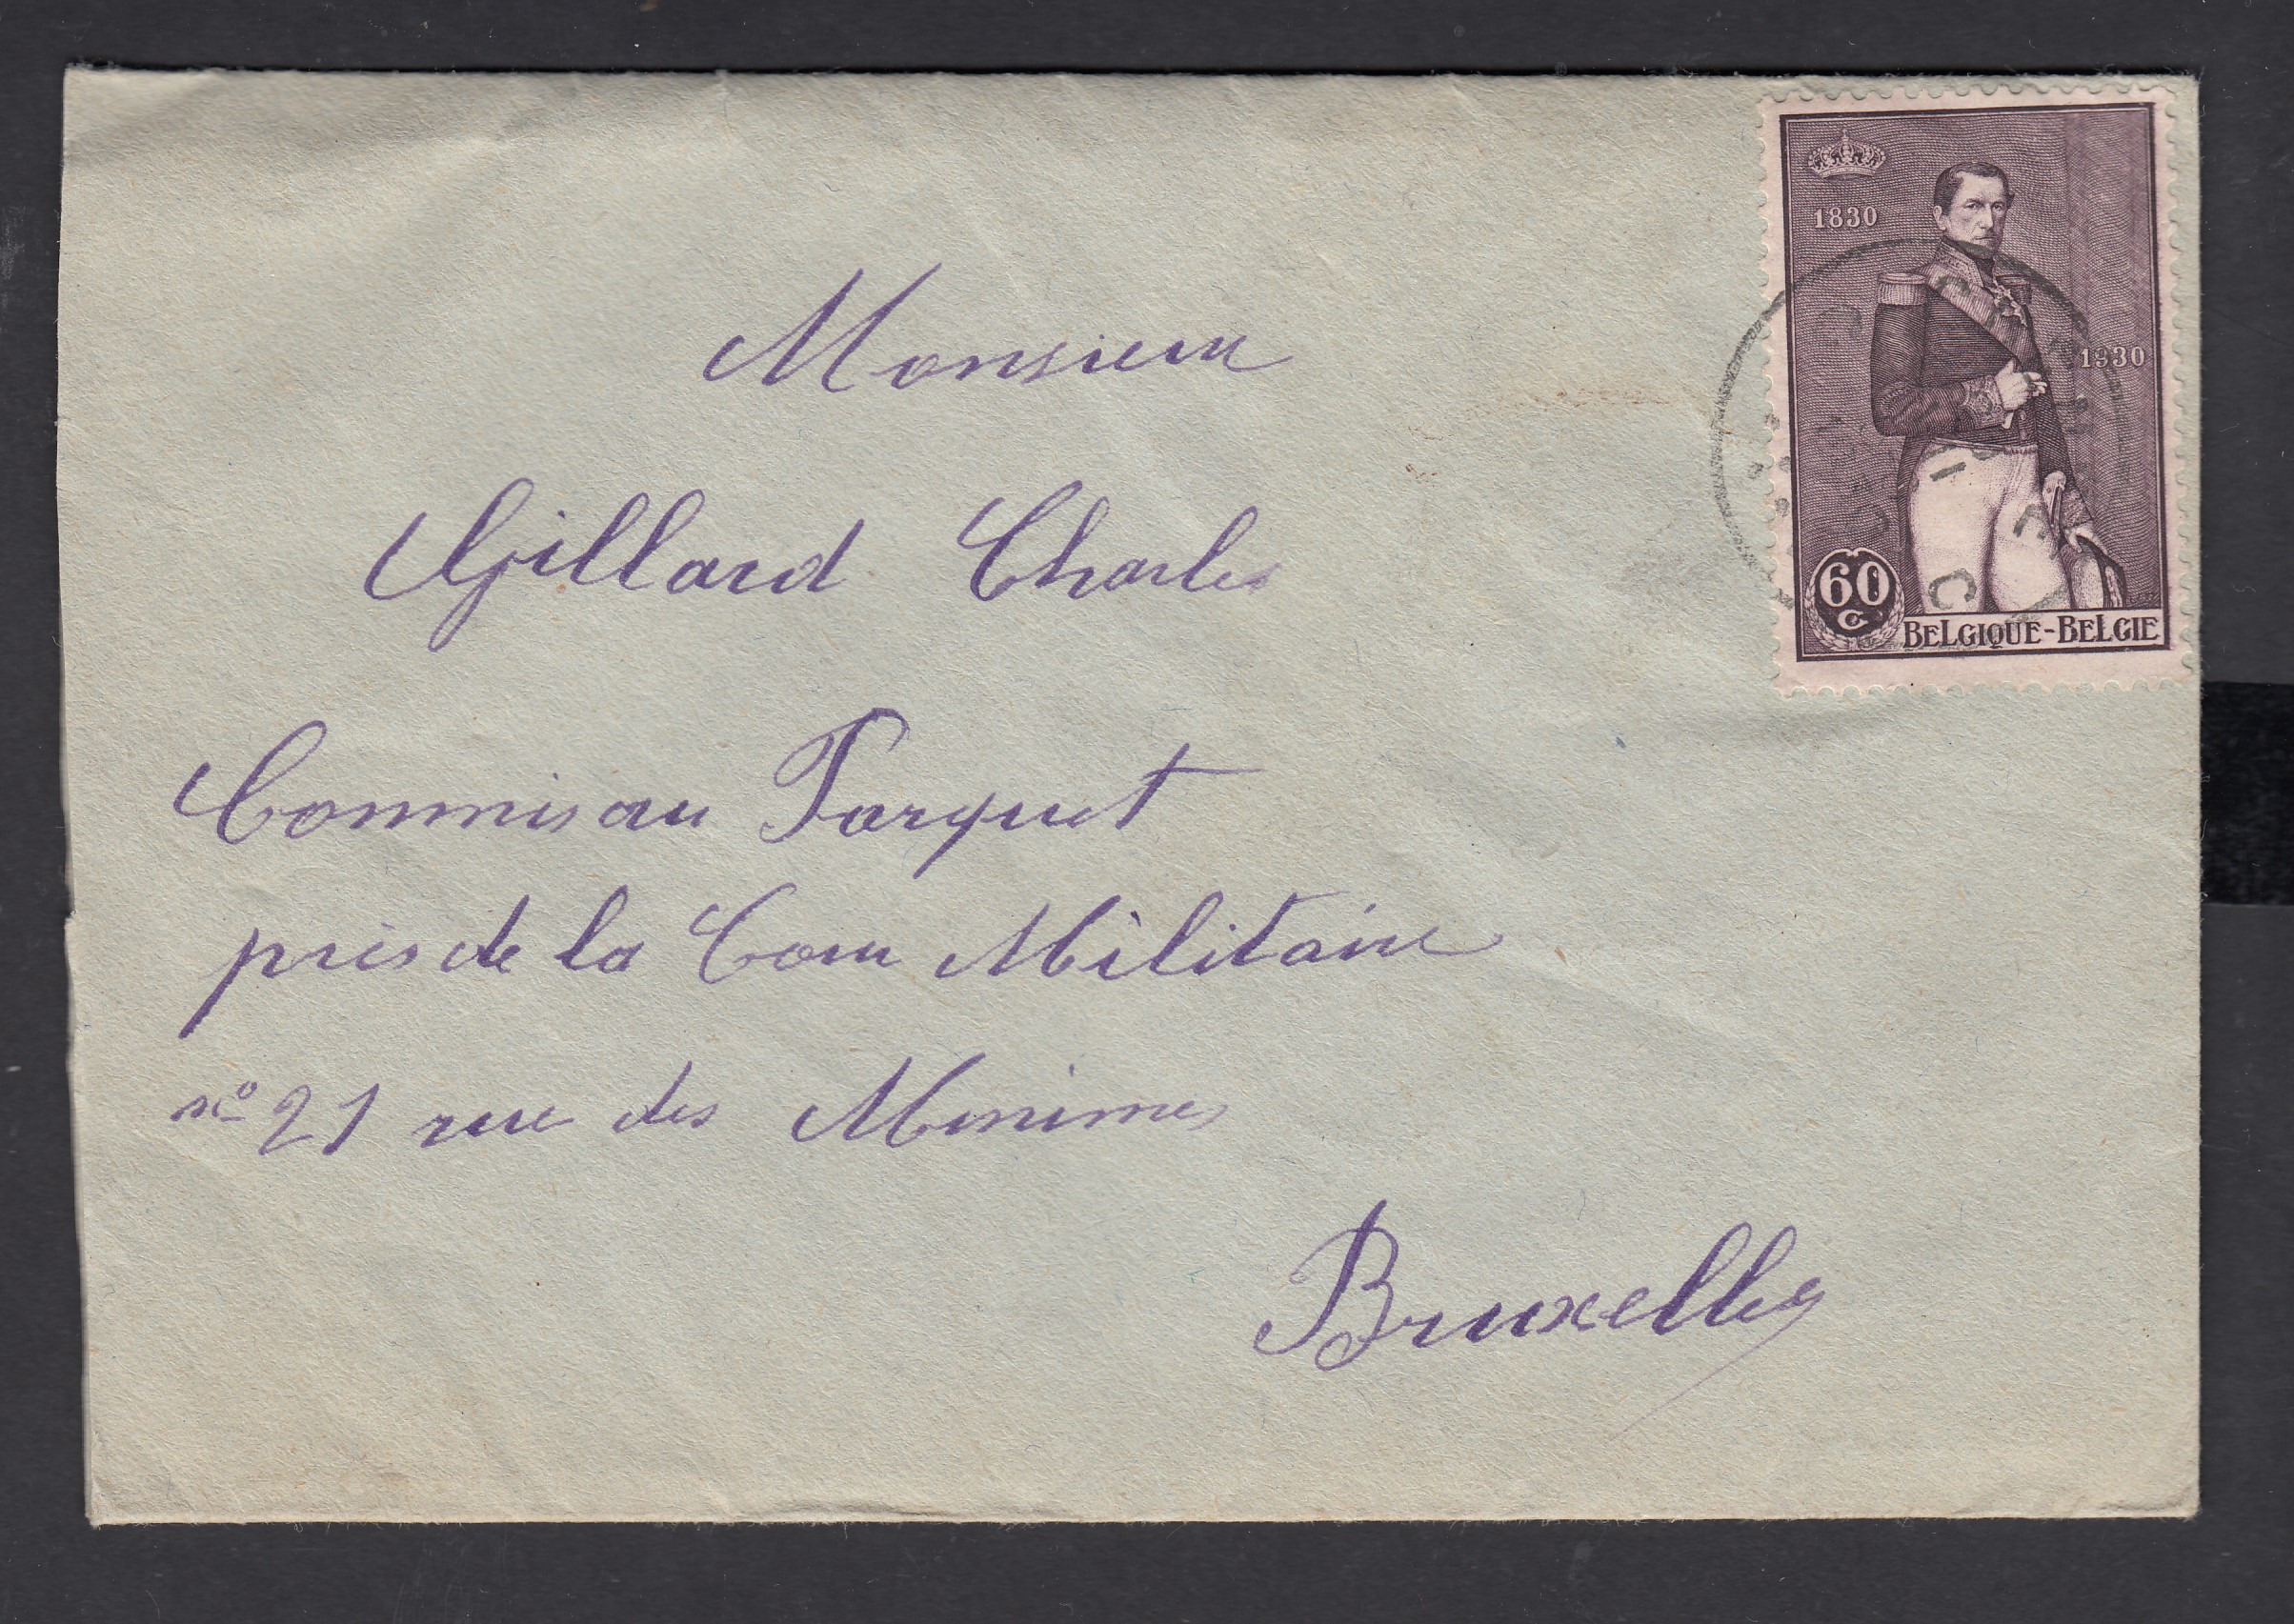 Monsieur
Gillard Charles
Commis au Parquet
près de la Cour Militaire
nº 21 rue des Minimes
Bruxelles
1830
1930
60
C
BELGIQUE-BELGIE